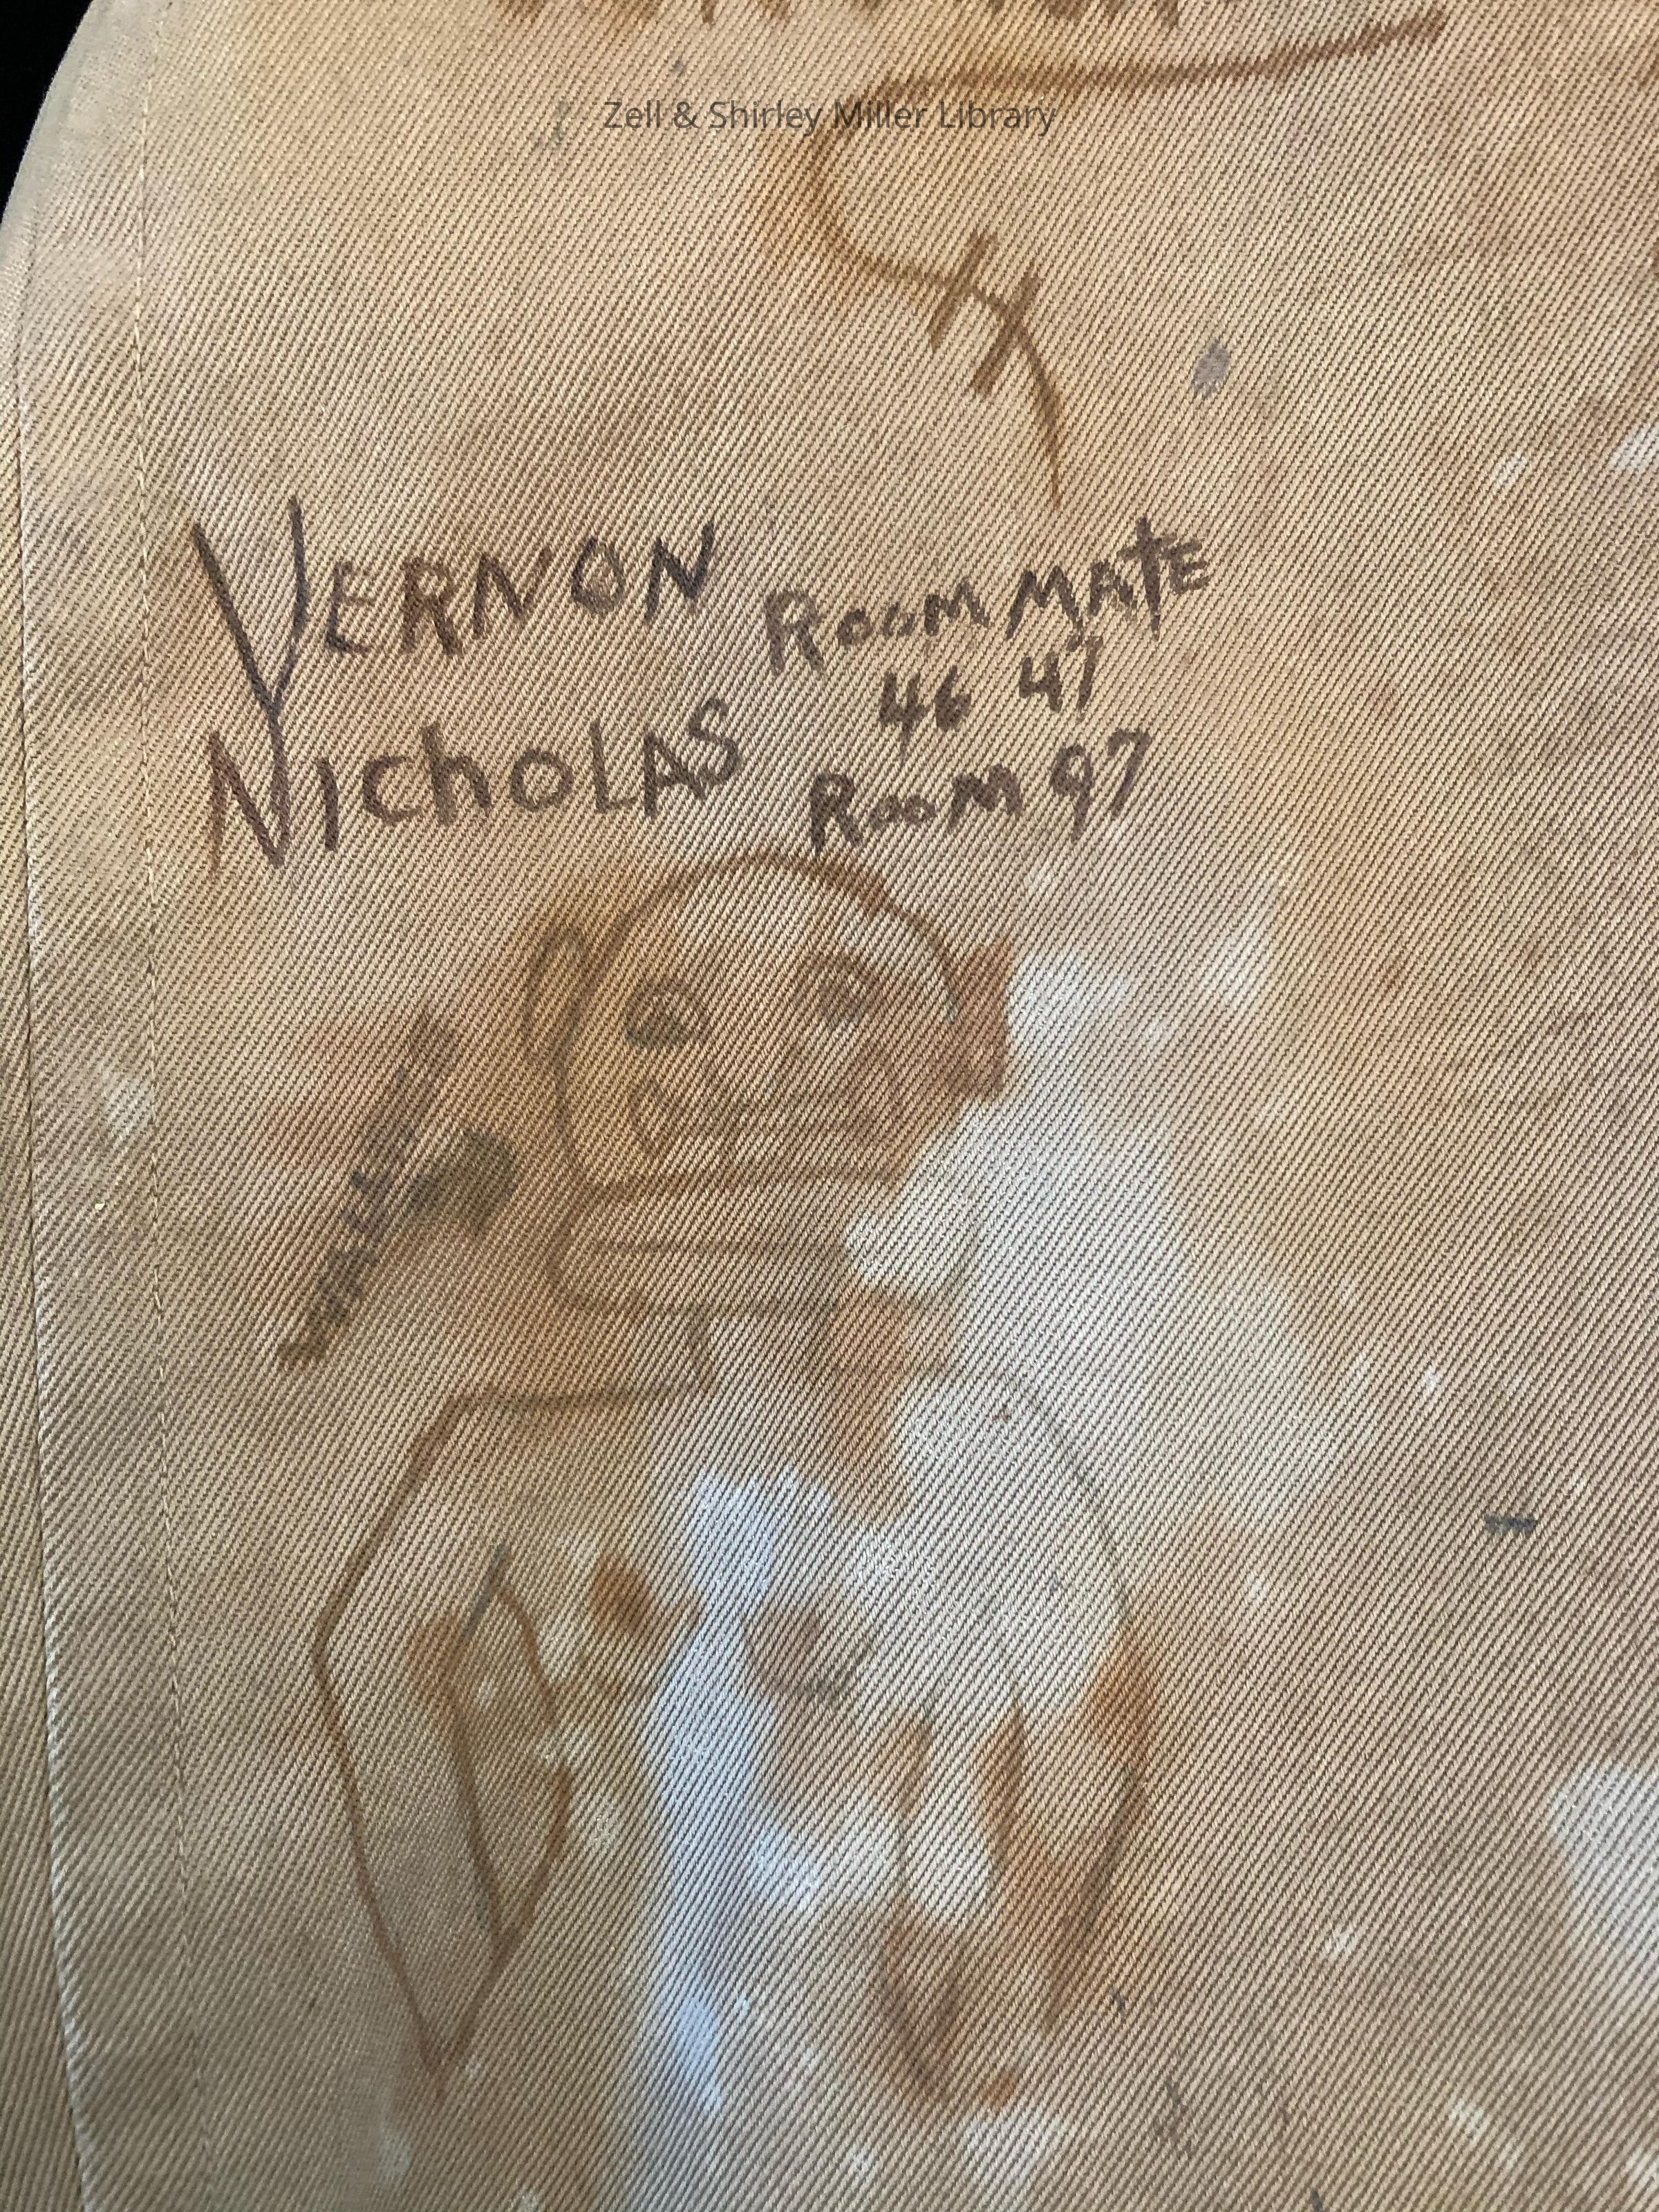 Zell & Shirley Miller Library
VERNON ROOM MATE
46 47
NIChOLAS ROOM 97